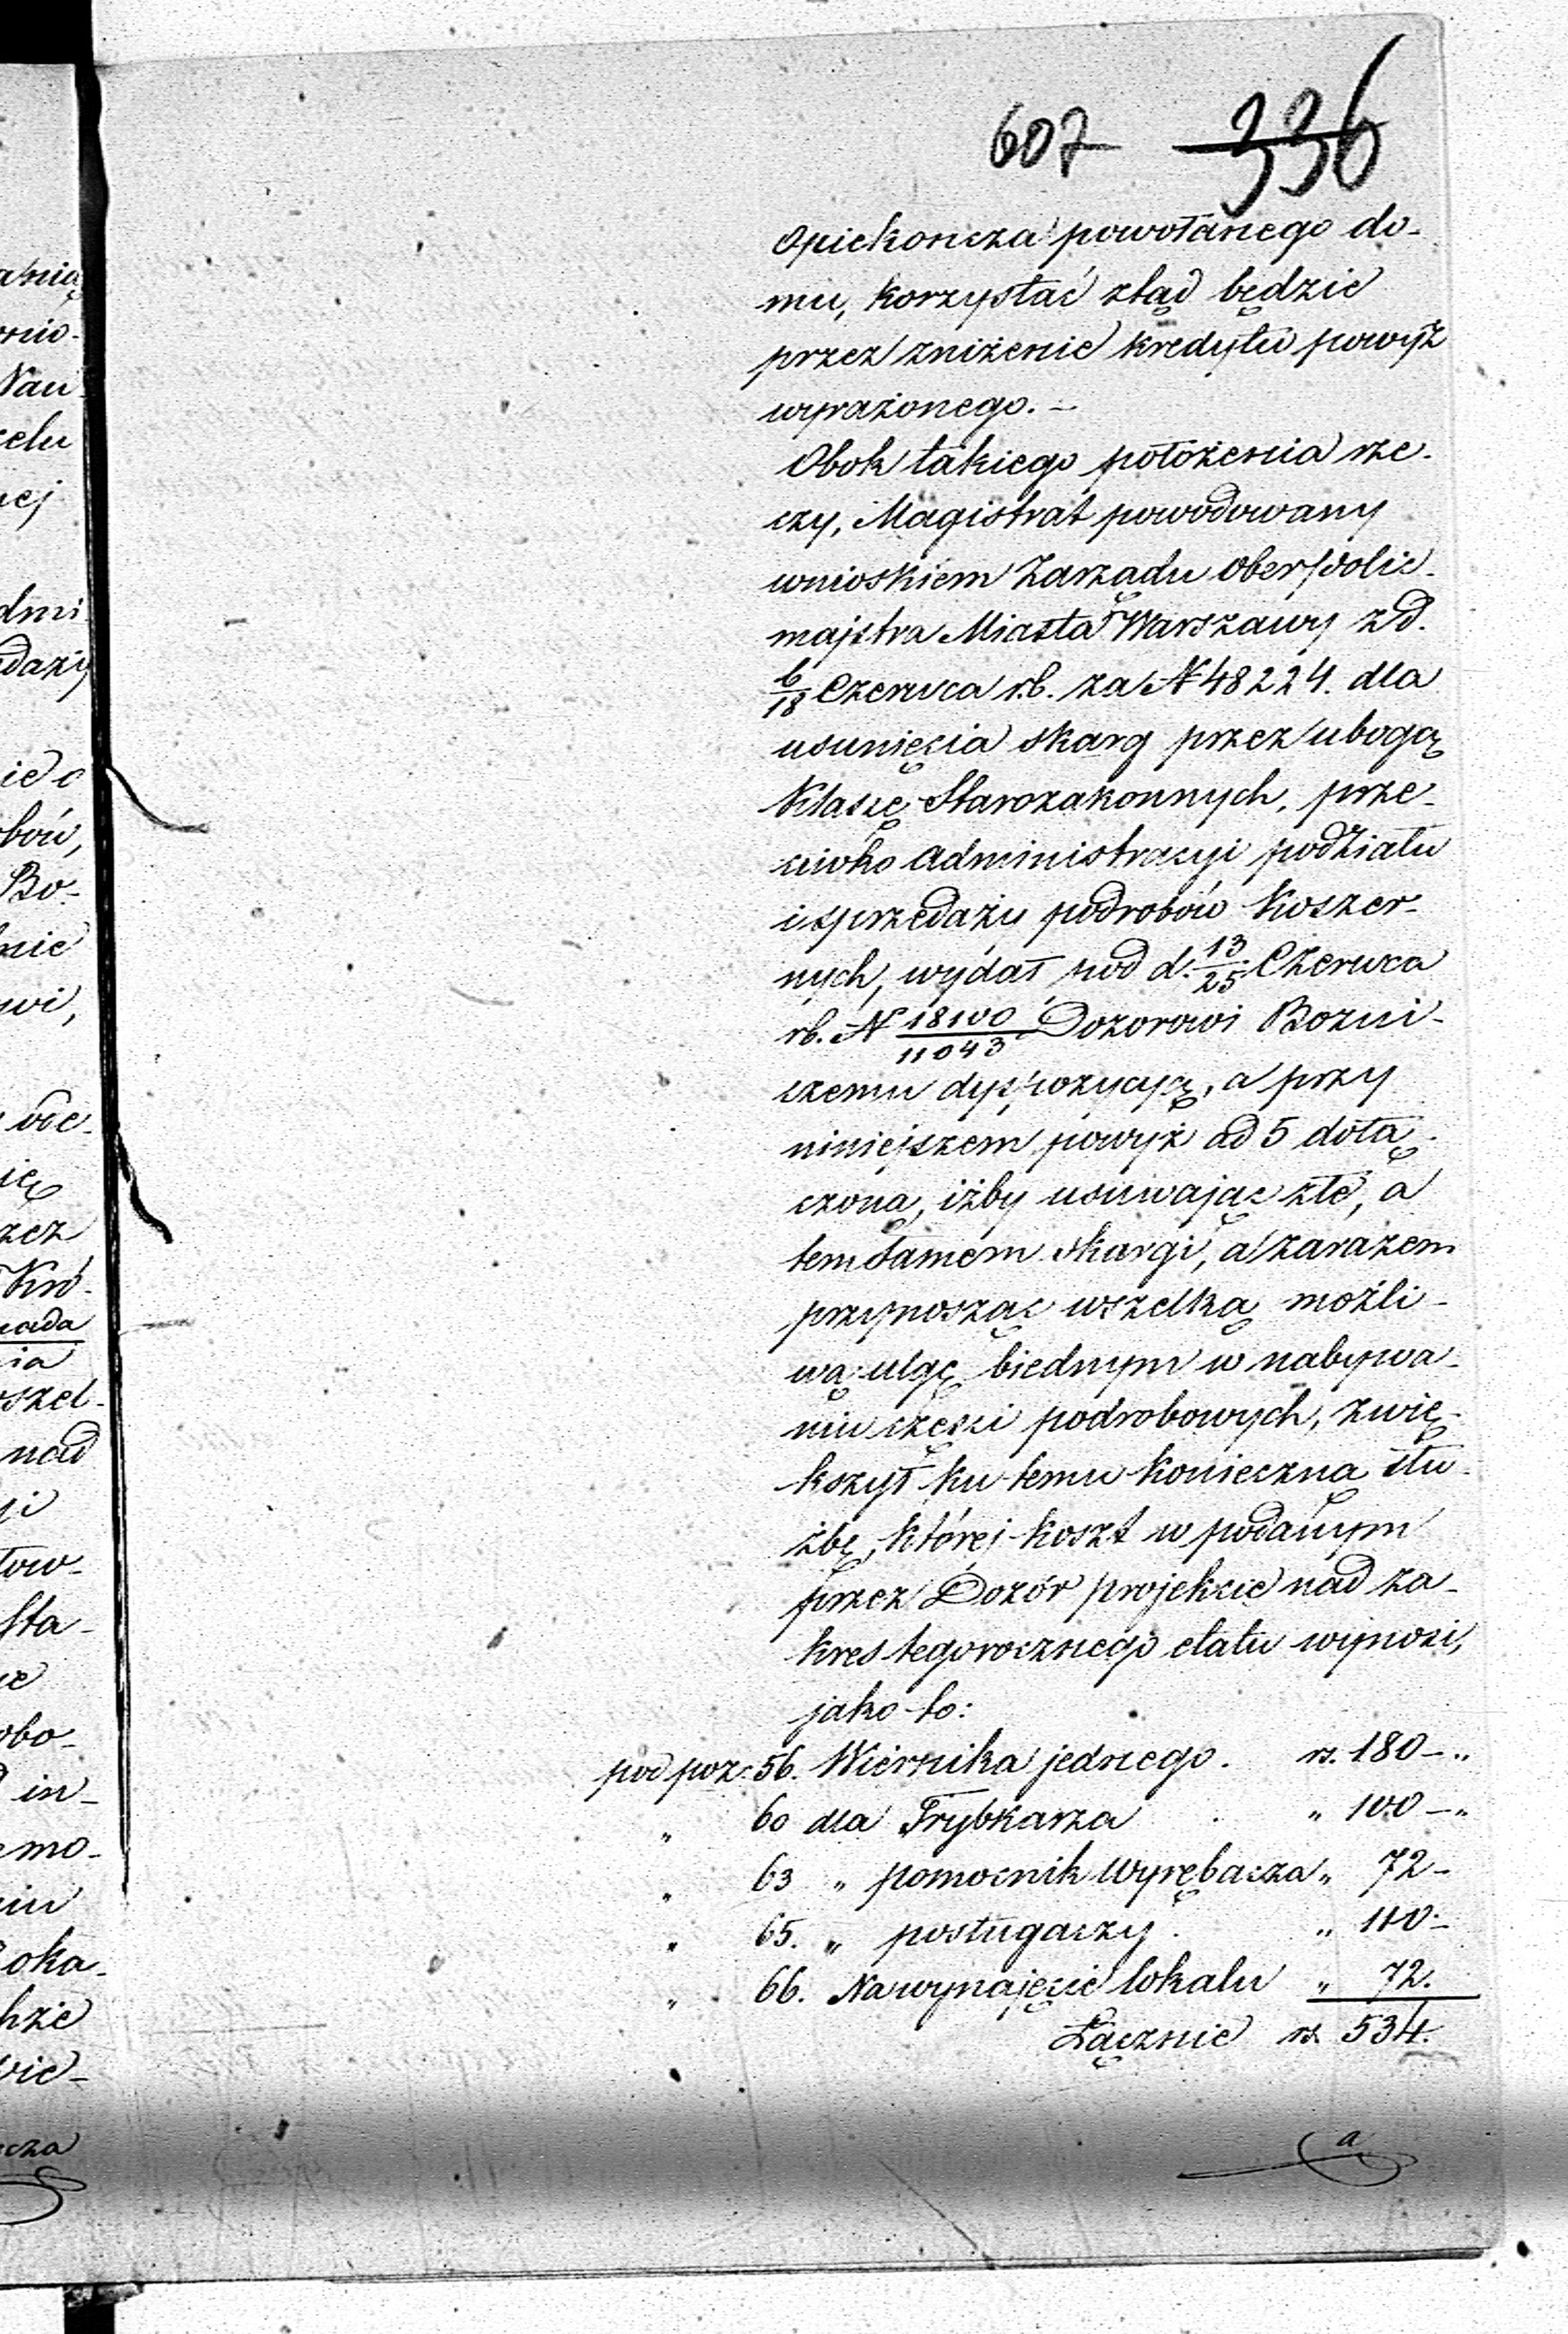 607 336
Opiekoncza powołanego do-
mu, korzystać ztąd będzie
przez zniżenie kredytu powyż
wyrażonego. —
Obok takiego położenia rze-
czy, Magistrat powodowany
wnioskiem Zarządu Oberpolic-
majstra Miasta Warszawy z d.
6/18 Czerwca r.b. za N 48224. dla
usunięcia skarg przez ubogą
Klassę Starozakonnych, prze-
ciwko administracyi podziału
i sprzedaży podrobów Koszer-
nych, wydał pod d. 13/25 Czerwca
rb. N 18100/11043 Dozorowi Bożni-
czemu dyspozycyą, a przy
niniejszem powyż ad 5 dołą-
czoną, iżby usuwając złe, a
tem samem skargi, a zarazem
przynosząc wszelką możli-
wą ulgę biednym w nabywa-
niu części podrobowych, zwię-
kszył ku temu konieczną słu-
żbę, której koszt w podanym
przez Dozór projekcie nad za-
kres tegorocznego etatu wynosi,
jako to:
pod poz: 56. Wiernika jednego. rs. 180 — „
„ 60 dla Trybkarza . „ 100 — „
„ 63 „ pomocnik Wyrębacza „ 72 —
„ 65. „ posługaczy . „ 110 —
„ 66. Na wynajęcie lokalu „ 72.
Łącznie rs. 534.
a
ną
Nau
celu
nej
dmi
daży
ie o
bów,
Bo-
nie
wi,
się
rzez
Kró-
szel-
nad
tow-
Sta-
obo-
in-
emo-
oka-
wie-
cza